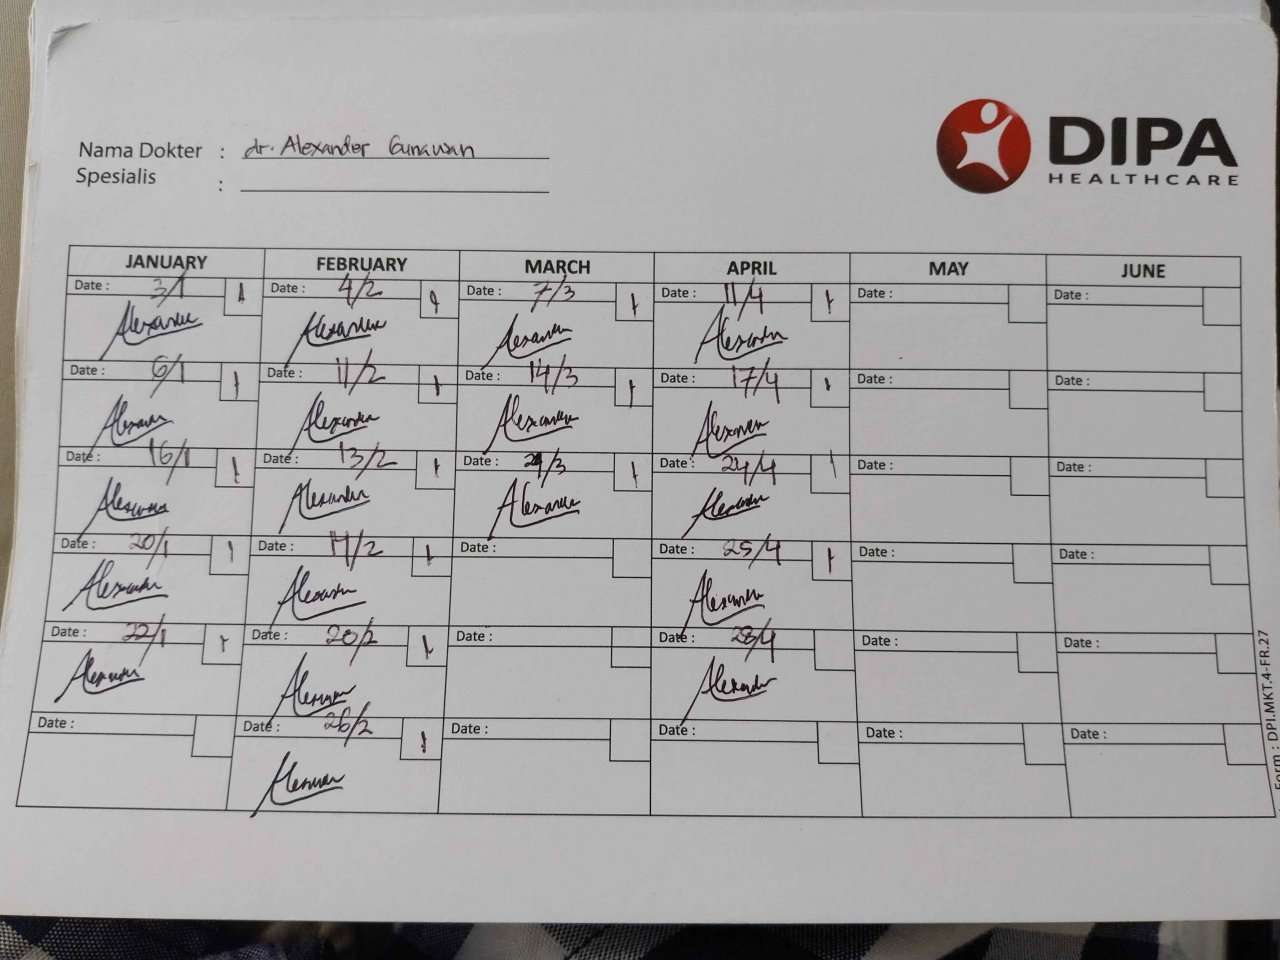 DIPA
HEALTHCARE
Nama Dokter : dr. Alexander Gunawan
Spesialis :
JANUARY FEBRUARY MARCH APRIL MAY JUNE
Date : 3/1 1 Date : 4/2 1 Date : 7/3 1 Date : 11/4 1 Date : Date :
Alexander Alexander Alexander Alexander
Date : 6/1 1 Date : 11/2 1 Date : 14/3 1 Date : 17/4 1 Date : Date :
Alexander Alexander Alexander Alexander
Date : 16/1 1 Date : 13/2 1 Date : /3 1 Date : 24/4 1 Date : Date :
Alexander Alexander Alexander Alexander
Date : 20/1 1 Date : /2 1 Date : Date : 25/4 1 Date : Date :
Alexander Alexander Alexander
Date : 22/1 1 Date : 20/2 1 Date : Date : 28/4 Date : Date :
Alexander Alexander Alexander
Date : Date : 26/2 1 Date : Date : Date : Date :
Alexander
Form : DPI.MKT.4-FR.27